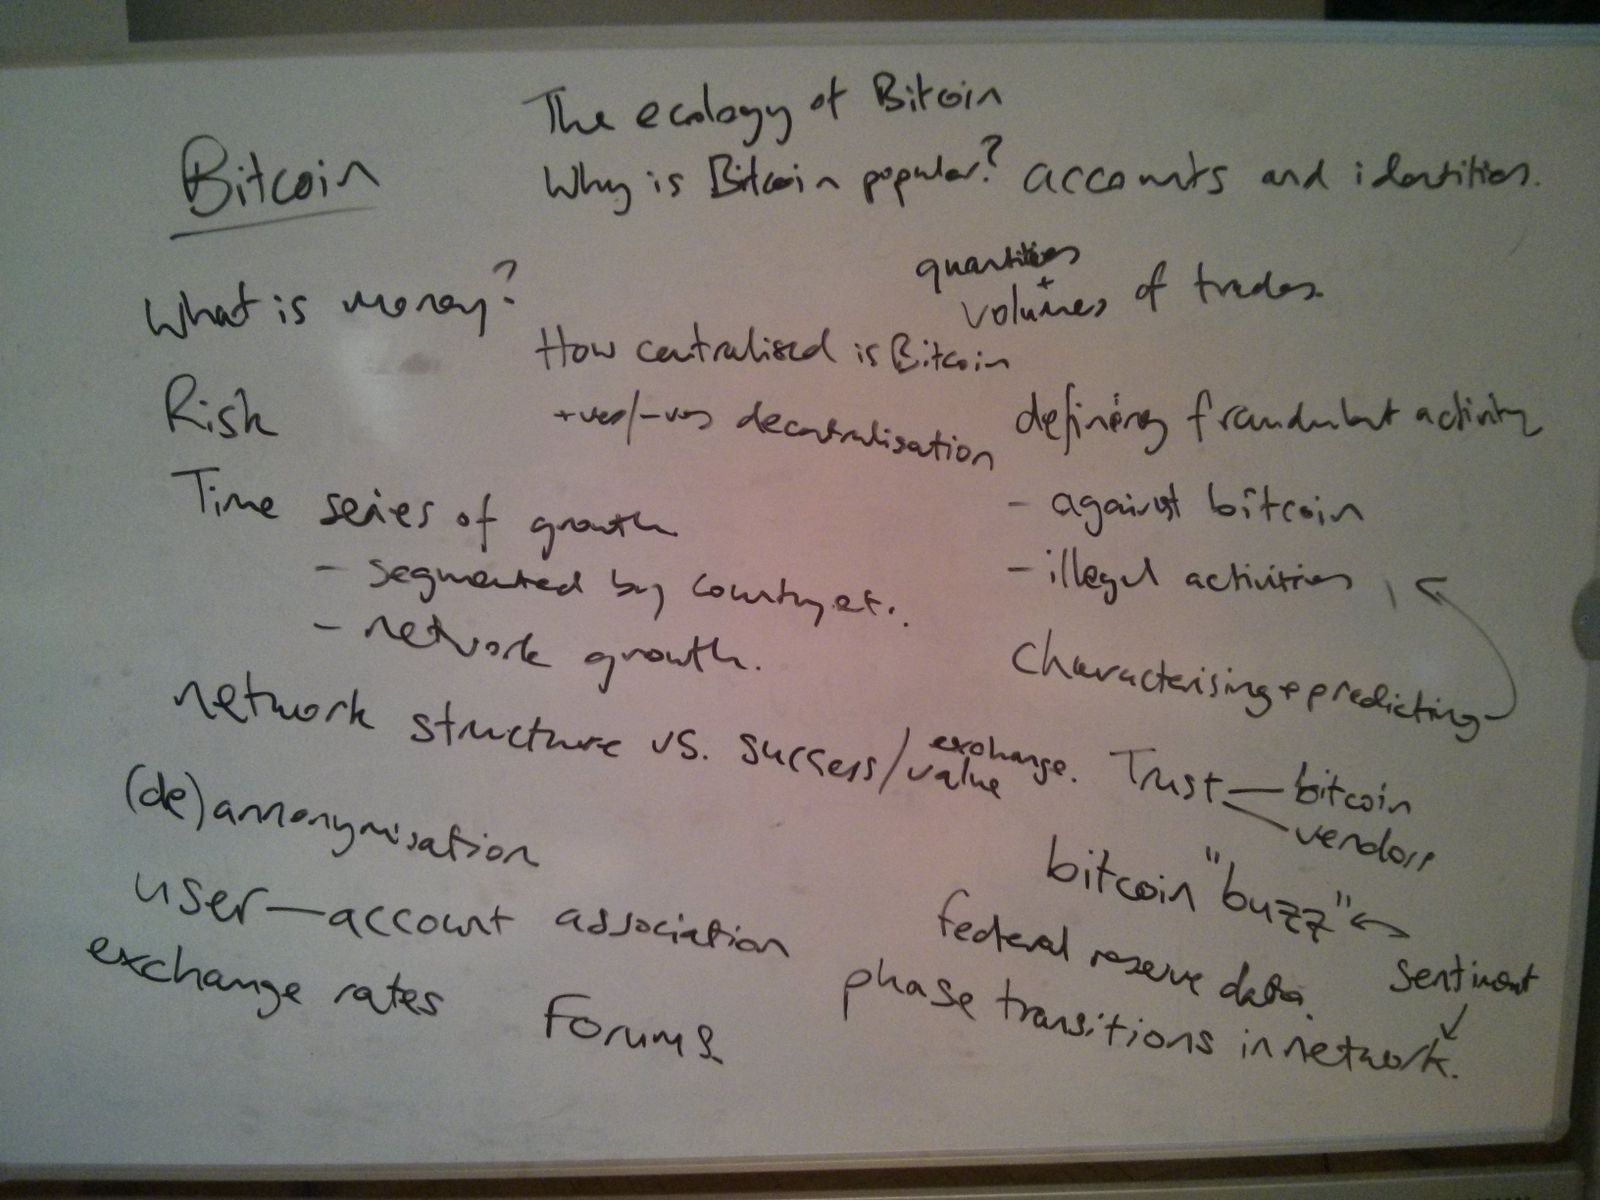 The ecology of Bitcoin
Bitcoin
Why is Bitcoin popular? accounts and identities.
What is money?
quantities
+
volumes of trades
How centralised is Bitcoin
Risk
+ves/-ves decentralisation
defining fraudulent activity
Time series of growth
- segmented by country et..
- network growth.
- against bitcoin
- illegal activities
Characterising + predicting
network structure vs. success/exchange value.
Trust — bitcoin
vendors
(de) annonymisation
bitcoin "buzz"
user — account association
federal reserve data.
sentiment
exchange rates
Forums
phase transitions in network.